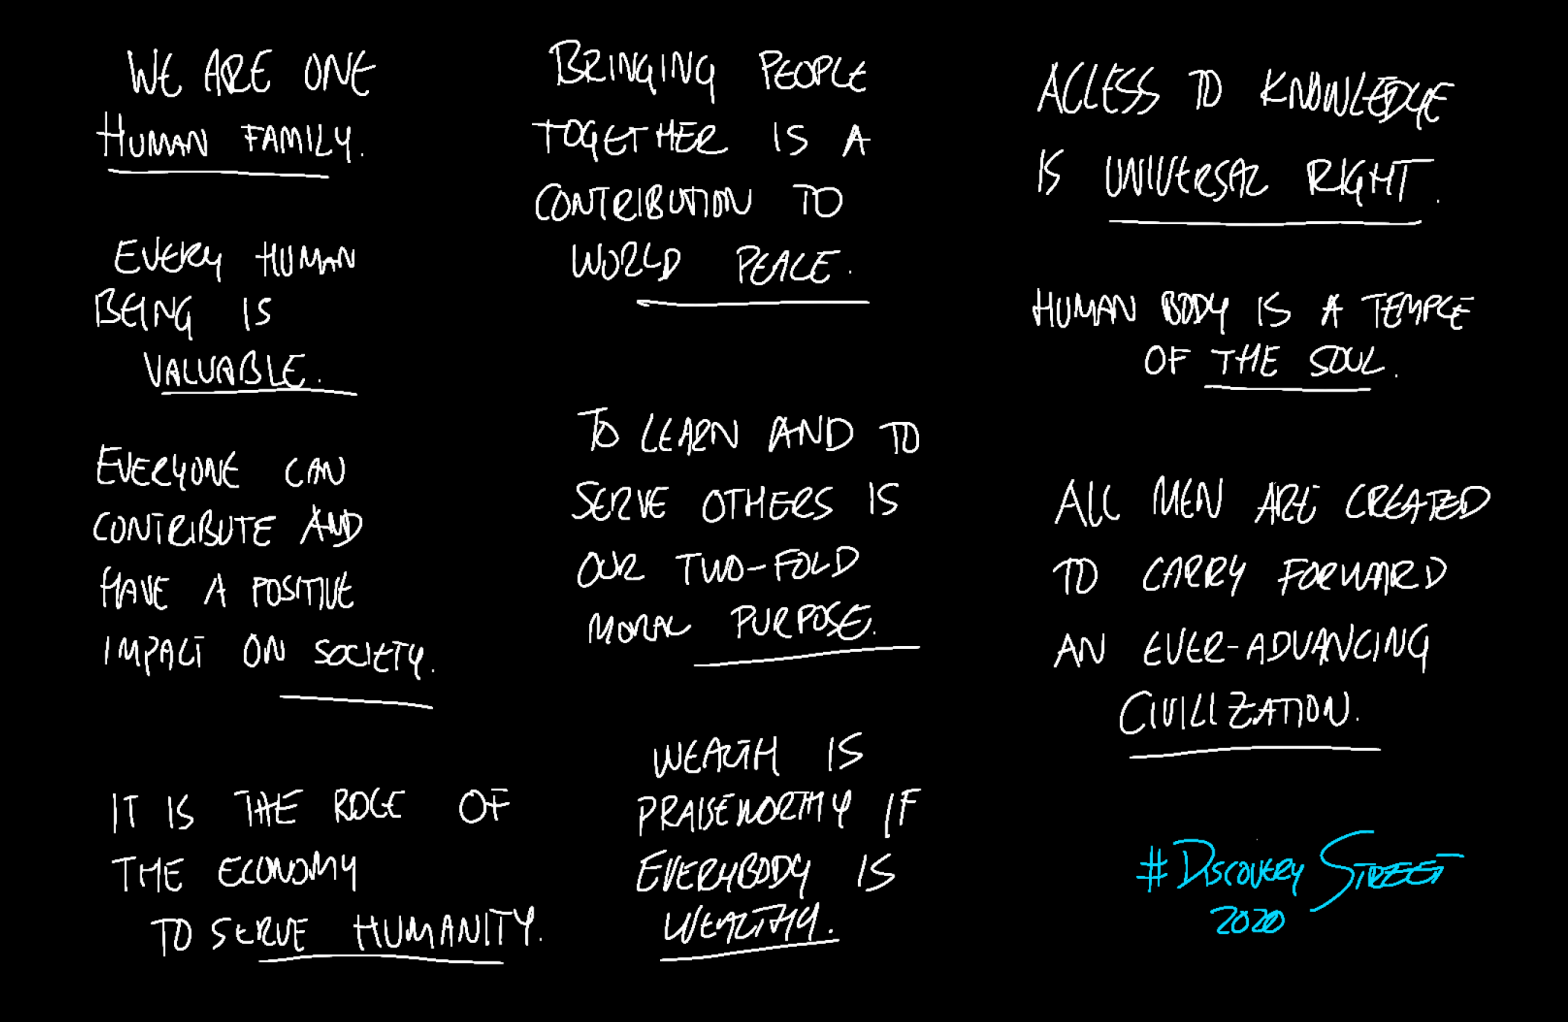 WE ARE ONE
HUMAN FAMILY.
EVERY HUMAN
BEING IS
VALUABLE.
EVERYONE CAN
CONTRIBUTE AND
HAVE A POSITIVE
IMPACT ON SOCIETY.
IT IS THE ROLE OF
THE ECONOMY
TO SERVE HUMANITY.
BRINGING PEOPLE
TOGETHER IS A
CONTRIBUTION TO
WORLD PEACE.
TO LEARN AND TO
SERVE OTHERS IS
OUR TWO-FOLD
MORAL PURPOSE.
WEALTH IS
PRAISEWORTHY IF
EVERYBODY IS
WEALTHY.
ACCESS TO KNOWLEDGE
IS UNIVERSAL RIGHT.
HUMAN BODY IS A TEMPLE
OF THE SOUL.
ALL MEN ARE CREATED
TO CARRY FORWARD
AN EVER-ADVANCING
CIVILIZATION.
#DISCOVERY STREET
2020